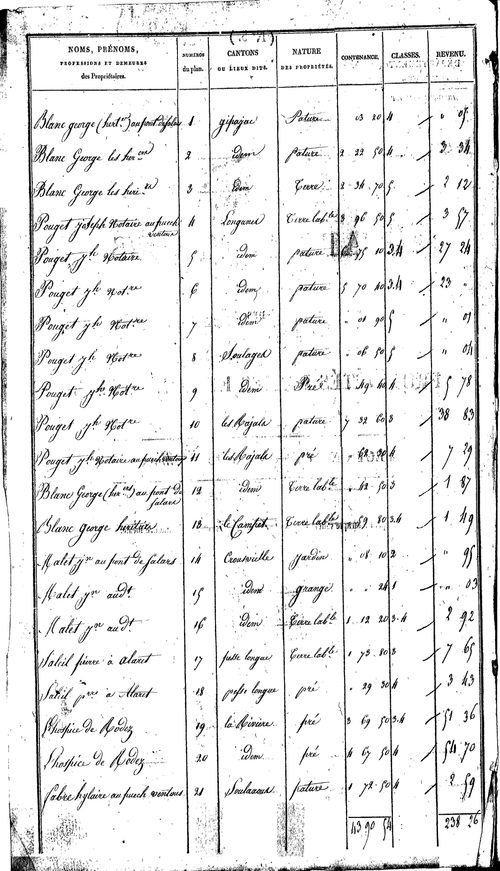 NOMS, PRÉNOMS,
PROFESSIONS ET DEMEURES
des Propriétaires.
NUMÉROS
du plan.
CANTONS
OU LIEUX DITS.
NATURE
DES PROPRIÉTÉS.
CONTENANCE.
CLASSES.
REVENU.
Blanc george au pont de salars 1 gipajac Pature 03 20 4 " 05
Blanc George les hér.ers 2 idem pature 2 22 50 4 3 34
Blanc George les hér.ers 3 idem Terre 2 34 70 5 2 12
Pouget joseph Notaire au puech ventous 4 Longues Terre lab.le 3 96 50 5 3 57
Pouget j.ph Notaire 5 idem pature 75 10 3.4 27 24
Pouget j.ph Not.re 6 idem pature 5 70 40 3.4 23 "
Pouget j.ph Not.re 7 idem pature " 01 90 5 " 01
Pouget j.ph Not.re 8 Soulages pature " 06 50 5 " 04
Pouget j.ph Not.re 9 idem Pré 49 40 4 5 78
Pouget j.ph Notre 10 les Majals pature 7 32 60 3 38 83
Pouget j.ph Notaire au puech ventous 11 les Majals pré " 62 30 4 7 29
Blanc George (hér.ers) au pont de salars 12 idem Terre lab.le " 42 50 3 1 87
Blanc George héritiers 13 le Campet Terre lab.le 59 80 3.4 1 49
Malet j.n au pont de Salars 14 jardin " 08 10 2 " 95
Malet j.n aud.t 15 idem grange " " 24 1 " 03
Malet j.n aud.t 16 idem Terre lab.le 1 12 20 3.4 2 92
Saleil pierre à alaret 17 pesse longue Terre lab.le 1 73 80 3 7 65
Saleil p.re à Alaret 18 pesse longue pré " 29 30 4 3 43
L'hospice de Rodez 19 la Rivière pré 3 69 50 3.4 51 36
L'hospice de Rodez 20 idem pré 4 67 50 4 54 70
Fabre hylaire au puech ventous 21 pature 1 72 50 4 2 59
43 90 54 238 26